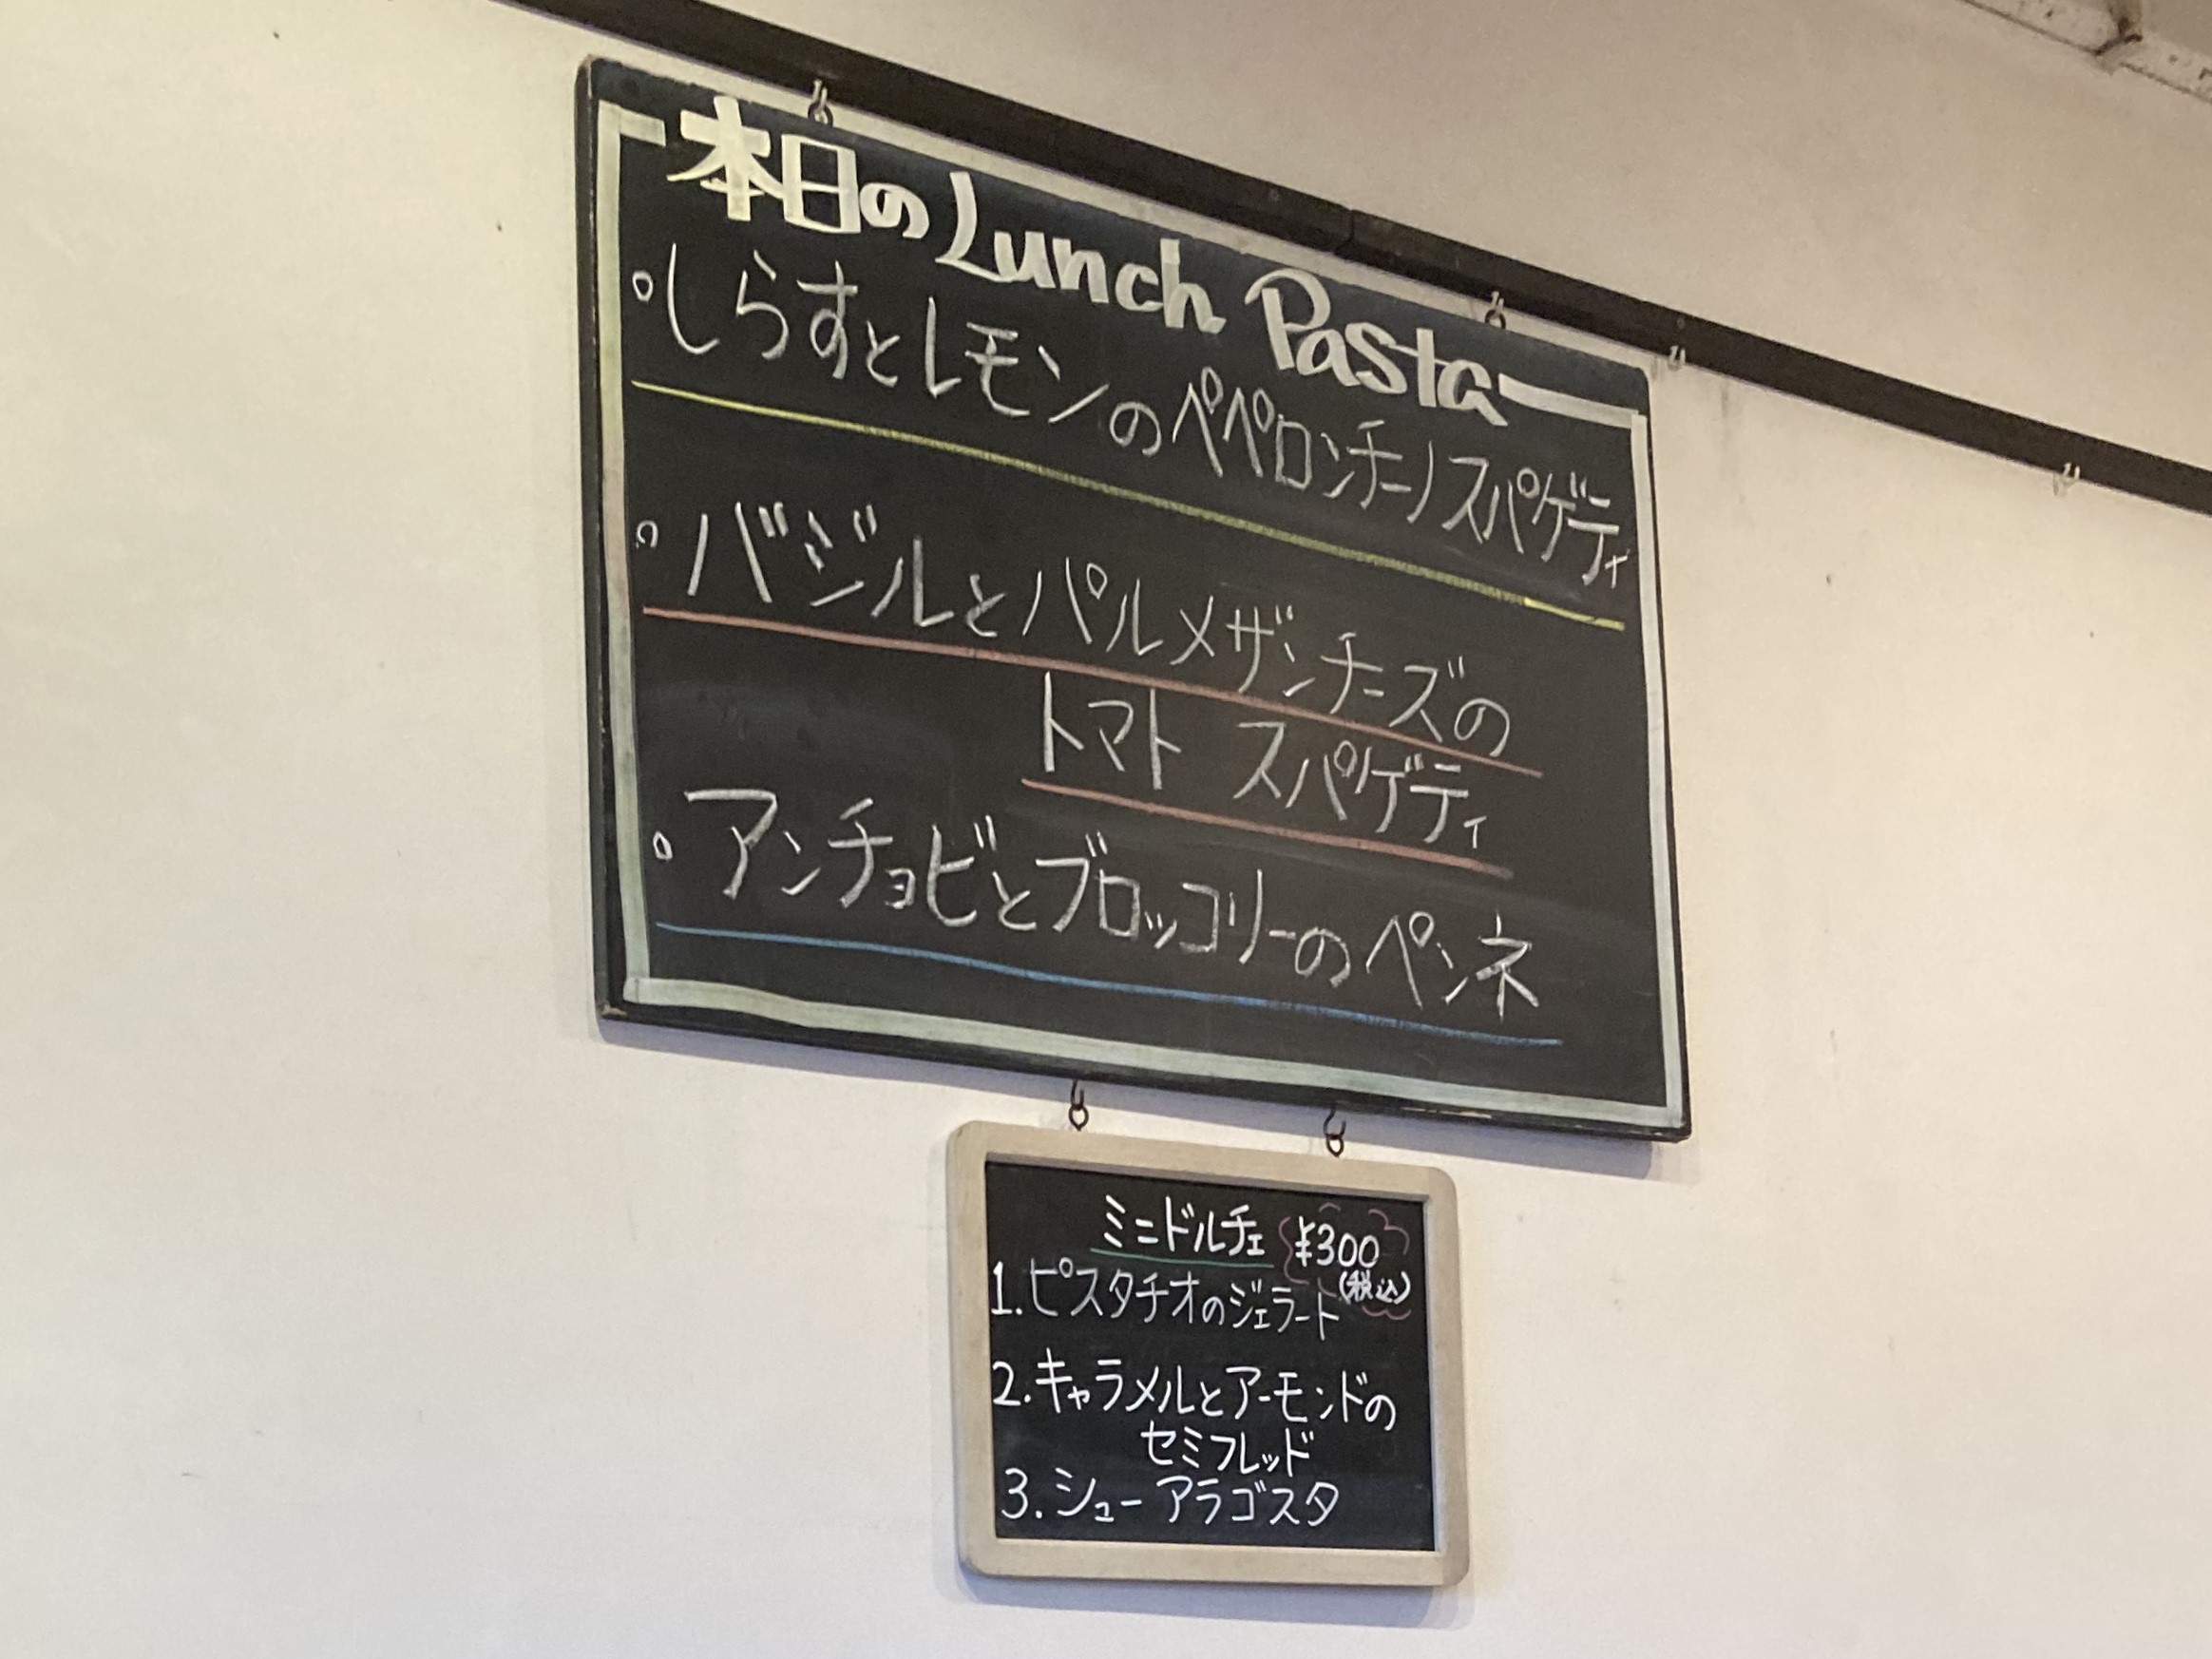 本日のLunch Pasta
・しらすとレモンのペペロンチーノスパゲティ
・バジルとパルメザンチーズの
トマト スパゲティ
・アンチョビとブロッコリーのペンネ
ミニドルチェ ¥300
(税込)
1.ピスタチオのジェラート
2.キャラメルとアーモンドの
セミフレッド
3.シューアラゴスタ